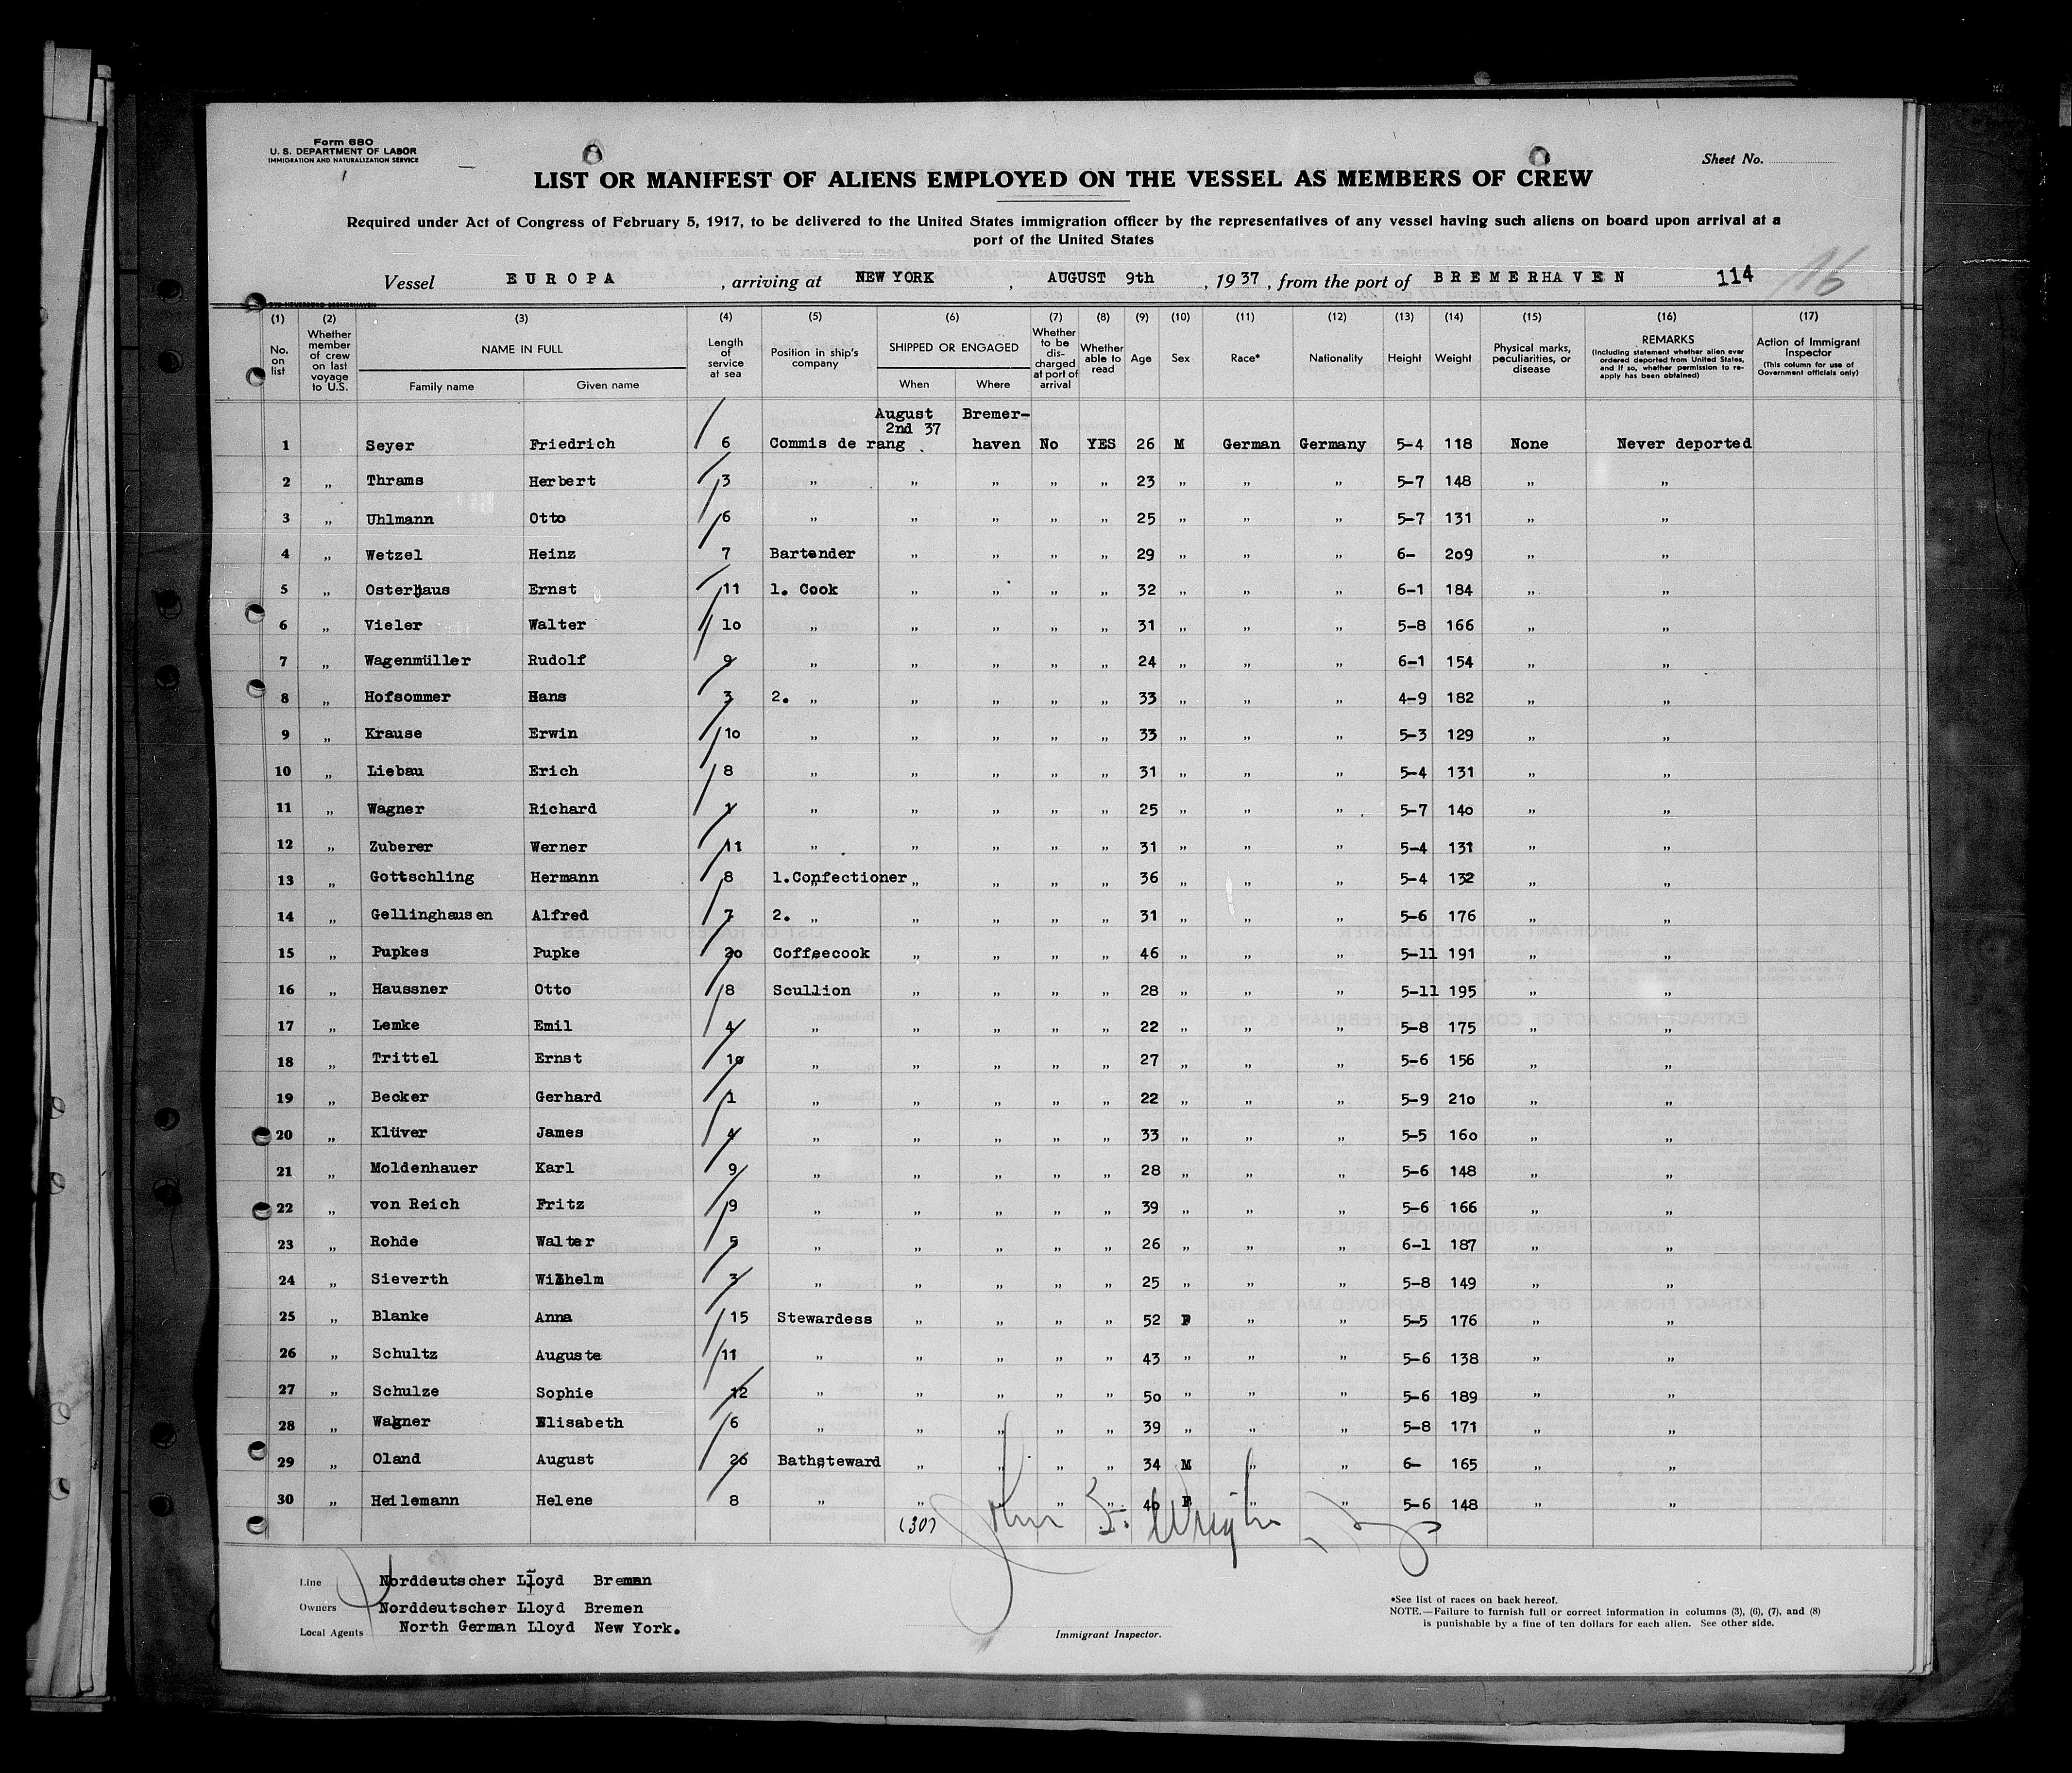 Form 680
U. S. DEPARTMENT OF LABOR
IMMIGRATION AND NATURALIZATION SERVICE
Sheet No.
LIST OR MANIFEST OF ALIENS EMPLOYED ON THE VESSEL AS MEMBERS OF CREW
Required under Act of Congress of February 5, 1917, to be delivered to the United States immigration officer by the representatives of any vessel having such aliens on board upon arrival at a
port of the United States
Vessel EUROPA, arriving at NEW YORK, AUGUST 9th, 1937, from the port of BREMERHAVEN 114 116
(1) (2) (3) (4) (5) (6) (7) (8) (9) (10) (11) (12) (13) (14) (15) (16) (17)
No. on list
Whether member of crew on last voyage to U.S.
NAME IN FULL
Family name
Given name
Length of service at sea
Position in ship's company
SHIPPED OR ENGAGED
When
Where
Whether to be discharged at port of arrival
Whether able to read
Age
Sex
Race*
Nationality
Height
Weight
Physical marks, peculiarities, or disease
REMARKS
(Including statement whether alien ever ordered deported from United States, and if so, whether permission to re-apply has been obtained)
Action of Immigrant Inspector
(This column for use of Government officials only)
August 2nd 37 Bremer-
1 Seyer Friedrich 6 Commis de rang haven No YES 26 M German Germany 5-4 118 None Never deported
2 „ Thrams Herbert 3 „ „ „ „ „ 23 „ „ „ 5-7 148 „ „
3 „ Uhlmann Otto 6 „ „ „ „ „ 25 „ „ „ 5-7 131 „ „
4 „ Wetzel Heinz 7 Bartender „ „ „ „ 29 „ „ „ 6- 209 „ „
5 „ Osterhaus Ernst 11 1. Cook „ „ „ „ 32 „ „ „ 6-1 184 „ „
6 „ Vieler Walter 10 „ „ „ „ „ 31 „ „ „ 5-8 166 „ „
7 „ Wagenmüller Rudolf 9 „ „ „ „ „ 24 „ „ „ 6-1 154 „ „
8 „ Hofsommer Hans 3 2. „ „ „ „ „ 33 „ „ „ 4-9 182 „ „
9 „ Krause Erwin 10 „ „ „ „ „ 33 „ „ „ 5-3 129 „ „
10 „ Liebau Erich 8 „ „ „ „ „ 31 „ „ „ 5-4 131 „ „
11 „ Wagner Richard 1 „ „ „ „ „ 25 „ „ „ 5-7 140 „ „
12 „ Zuberer Werner 11 „ „ „ „ „ 31 „ „ „ 5-4 131 „ „
13 „ Gottschling Hermann 8 1.Confectioner „ „ „ „ 36 „ „ „ 5-4 132 „ „
14 „ Gellinghausen Alfred 7 2. „ „ „ „ „ 31 „ „ „ 5-6 176 „ „
15 „ Pupkes Pupke 20 Coffeecook „ „ „ „ 46 „ „ „ 5-11 191 „ „
16 „ Haussner Otto 8 Scullion „ „ „ „ 28 „ „ „ 5-11 195 „ „
17 „ Lemke Emil 4 „ „ „ „ „ 22 „ „ „ 5-8 175 „ „
18 „ Trittel Ernst 10 „ „ „ „ „ 27 „ „ „ 5-6 156 „ „
19 „ Becker Gerhard 1 „ „ „ „ „ 22 „ „ „ 5-9 210 „ „
20 „ Klüver James 4 „ „ „ „ „ 33 „ „ „ 5-5 160 „ „
21 „ Moldenhauer Karl 9 „ „ „ „ „ 28 „ „ „ 5-6 148 „ „
22 „ von Reich Fritz 9 „ „ „ „ „ 39 „ „ „ 5-6 166 „ „
23 „ Rohde Walter 5 „ „ „ „ „ 26 „ „ „ 6-1 187 „ „
24 „ Sieverth Wilhelm 3 „ „ „ „ „ 25 „ „ „ 5-8 149 „ „
25 „ Blanke Anna 15 Stewardess „ „ „ „ 52 F „ „ 5-5 176 „ „
26 „ Schultz Auguste 11 „ „ „ „ „ 43 „ „ „ 5-6 138 „ „
27 „ Schulze Sophie 12 „ „ „ „ „ 50 „ „ „ 5-6 189 „ „
28 „ Wagner Elisabeth 6 „ „ „ „ „ 39 „ „ „ 5-8 171 „ „
29 „ Oland August 26 Bathsteward „ „ „ „ 34 M „ „ 6- 165 „ „
30 „ Heilemann Helene 8 „ „ „ „ „ 40 F „ „ 5-6 148 „ „
(30) John Wright
Line Norddeutscher Lloyd Bremen
Owners Norddeutscher Lloyd Bremen
Local Agents North German Lloyd New York.
Immigrant Inspector.
*See list of races on back hereof.
NOTE.—Failure to furnish full or correct information in columns (3), (6), (7), and (8)
is punishable by a fine of ten dollars for each alien. See other side.